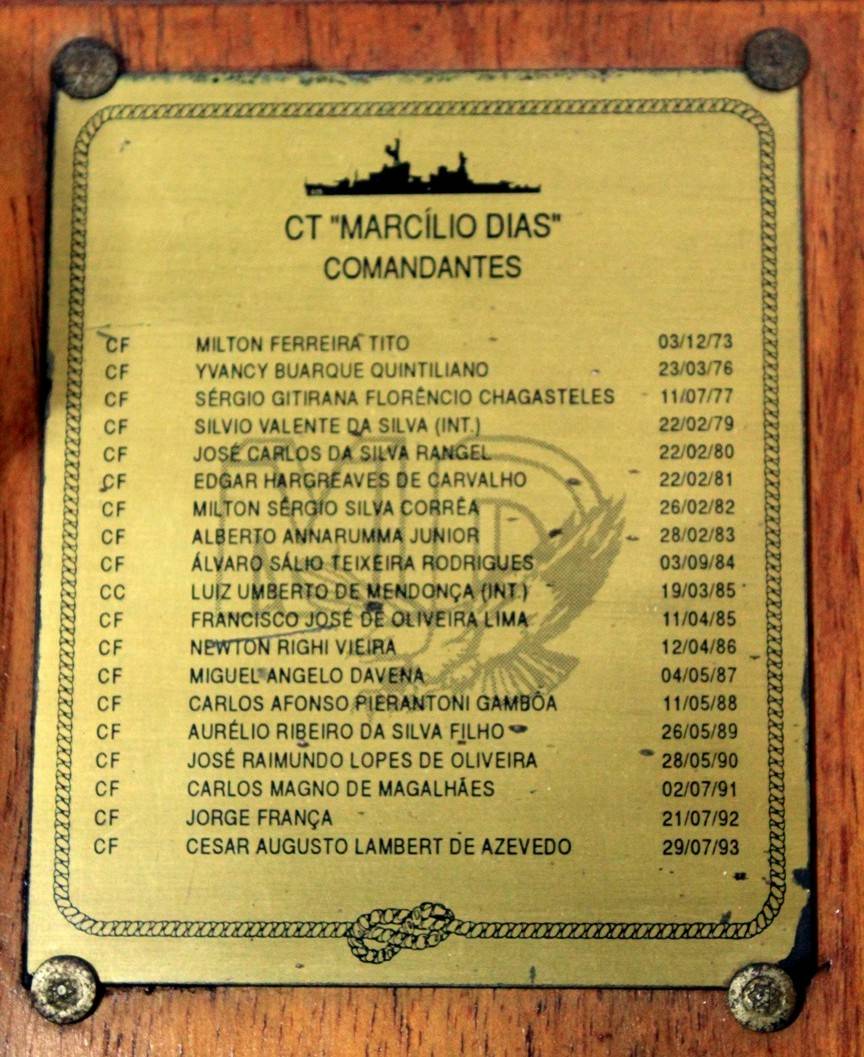 CT "MARCÍLIO DIAS"
COMANDANTES
CF MILTON FERREIRA TITO 03/12/73
CF YVANCY BUARQUE QUINTILIANO 23/03/76
CF SÉRGIO GITIRANA FLORÊNCIO CHAGASTELES 11/07/77
CF SILVIO VALENTE DA SILVA (INT.) 22/02/79
CF JOSÉ CARLOS DA SILVA RANGEL 22/02/80
CF EDGAR HARGREAVES DE CARVALHO 22/02/81
CF MILTON SÉRGIO SILVA CORRÊA 26/02/82
CF ALBERTO ANNARUMMA JUNIOR 28/02/83
CF ÁLVARO SÁLIO TEIXEIRA RODRIGUES 03/09/84
CC LUIZ UMBERTO DE MENDONÇA (INT.) 19/03/85
CF FRANCISCO JOSÉ DE OLIVEIRA LIMA 11/04/85
CF NEWTON RIGHI VIEIRA 12/04/86
CF MIGUEL ANGELO DAVENA 04/05/87
CF CARLOS AFONSO PIERANTONI GAMBÔA 11/05/88
CF AURÉLIO RIBEIRO DA SILVA FILHO 26/05/89
CF JOSÉ RAIMUNDO LOPES DE OLIVEIRA 28/05/90
CF CARLOS MAGNO DE MAGALHÃES 02/07/91
CF JORGE FRANÇA 21/07/92
CF CESAR AUGUSTO LAMBERT DE AZEVEDO 29/07/93